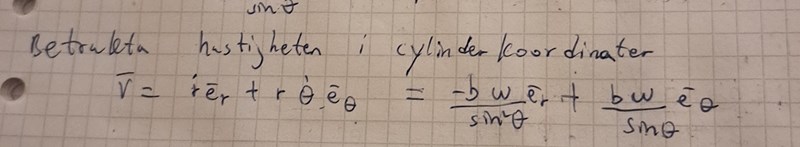 sin θ
Betrakta hastigheten i cylinderkoordinater
v̄ = ṙ ē_r + r θ̇ ē_θ = \frac{-b ω}{sin²θ} ē_r + \frac{b ω}{sin θ} ē_θ